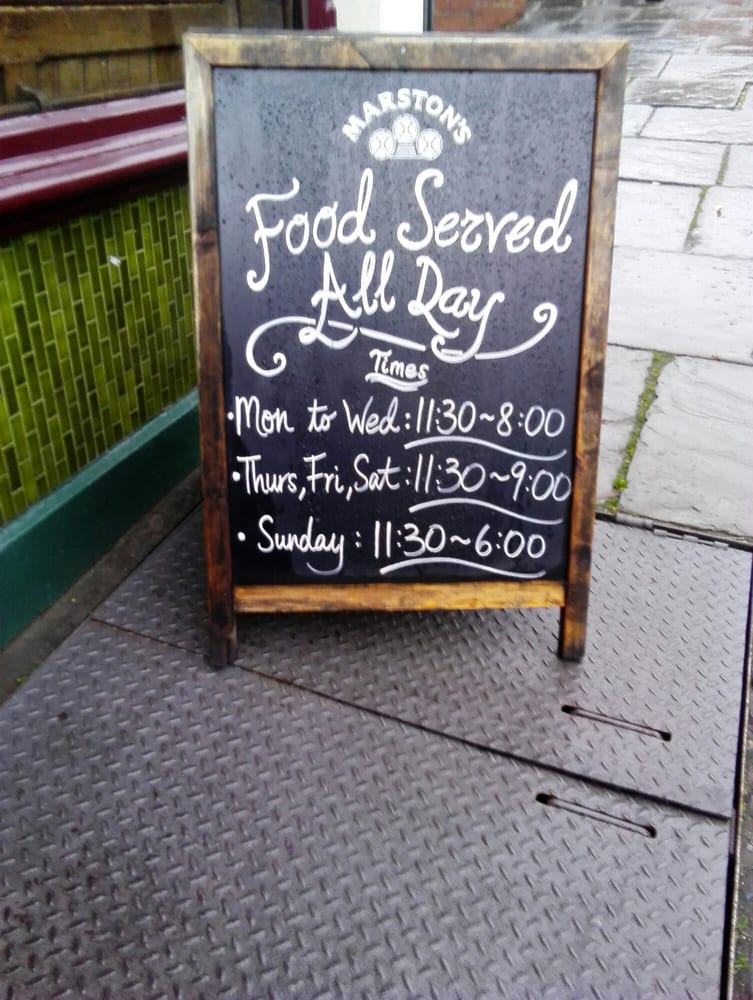 MARSTON'S
Food Served
All Day
Times
•Mon to Wed:11:30~8:00
•Thurs,Fri,Sat:11:30~9:00
• Sunday: 11:30~6:00